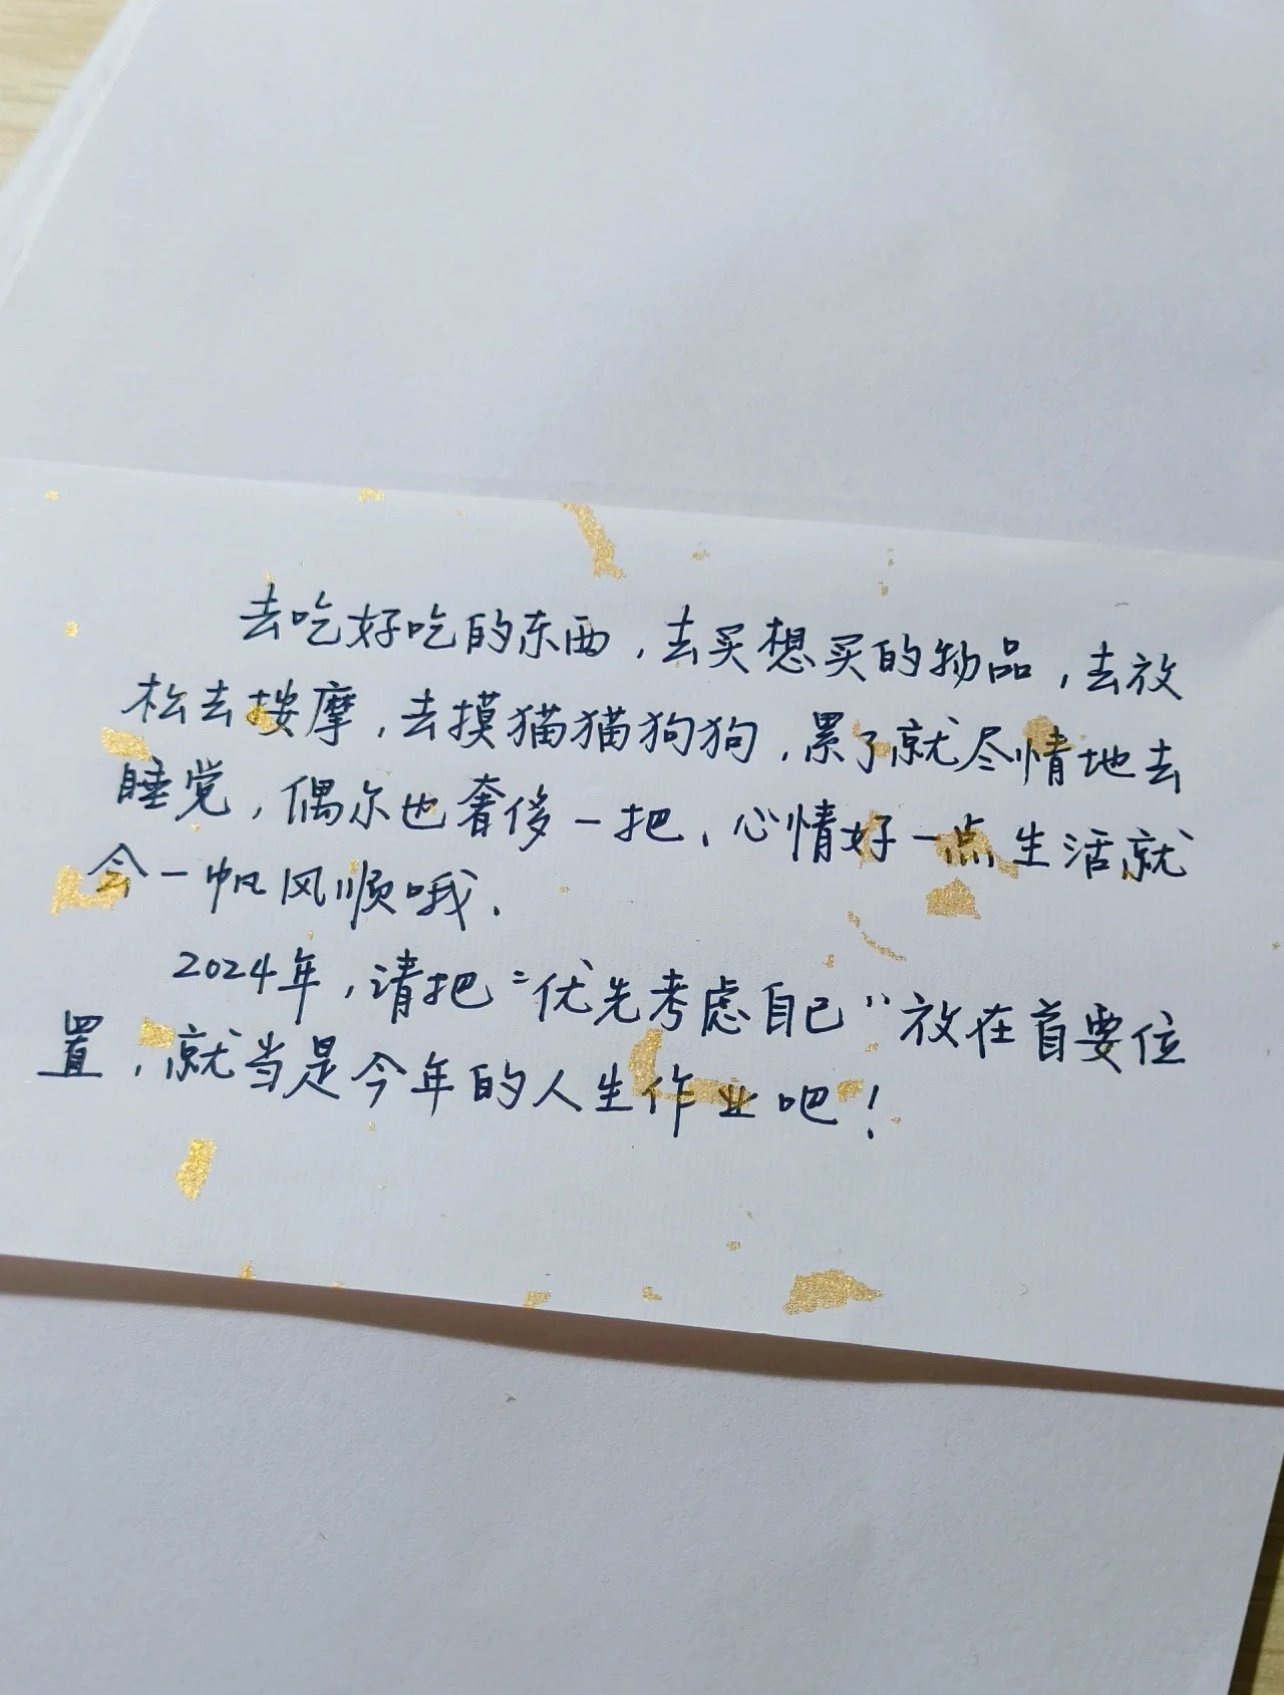 去吃好吃的东西,去买想买的物品,去放
松去按摩,去摸猫猫狗狗,累了就尽情地去
睡觉,偶尔也奢侈一把,心情好一点生活就
会一帆风顺哦.
2024年,请把“优先考虑自己”放在首要位
置,就当是今年的人生作业吧!